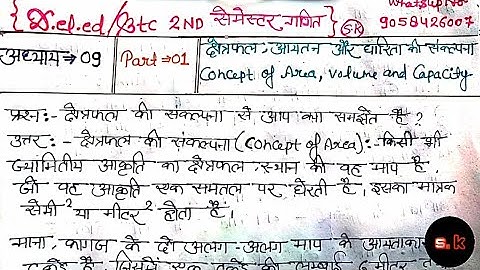 {D.el.ed/Btc 2ND सेमेस्टर गणित} SK 9058426007
अध्याय → 09 Part → 01 क्षेत्रफल, आयतन और धारिता की संकल्पना
Concept of Area, volume and Capacity
प्रश्न:- क्षेत्रफल की संकल्पना से आप क्या समझते है?
उत्तर:- क्षेत्रफल की संकल्पना (Concept of Area):- किसी भी
ज्यामितीय आकृति का क्षेत्रफल, स्थान की वह माप है
जो वह आकृति एक समतल पर घेरती है। इसका मात्रक
सेमी² या मीटर² होता है।
माना, कागज के दो अलग-अलग माप के आयताकार
टुकड़े है, जिसमें एक टुकड़े की लम्बाई
S.K